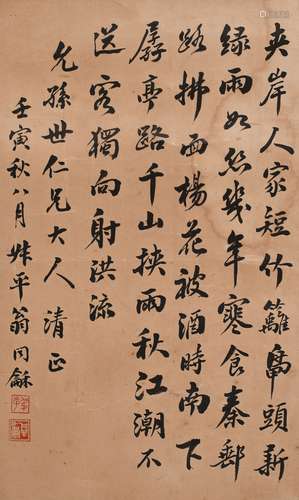 夾岸人家短竹籬鳬頭新
緑雨如絲幾年寒食秦郵
路拂面楊花被酒時南下
孱亭路千山挾雨秋江潮不
送客獨向射洪流
允孫世仁兄大人 清正
壬寅秋八月叔平翁同龢